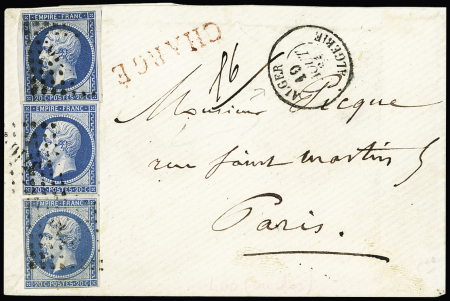 EMPIRE FRANC.
20 C. POSTES 20 C.
EMPIRE FRANC.
20 C. POSTES 20 C.
EMPIRE FRANC.
20 C. POSTES 20 C.
CHARGE
86
ALGER
ALGERIE
Monsieur Picque
rue Saint Martin 5
Paris.